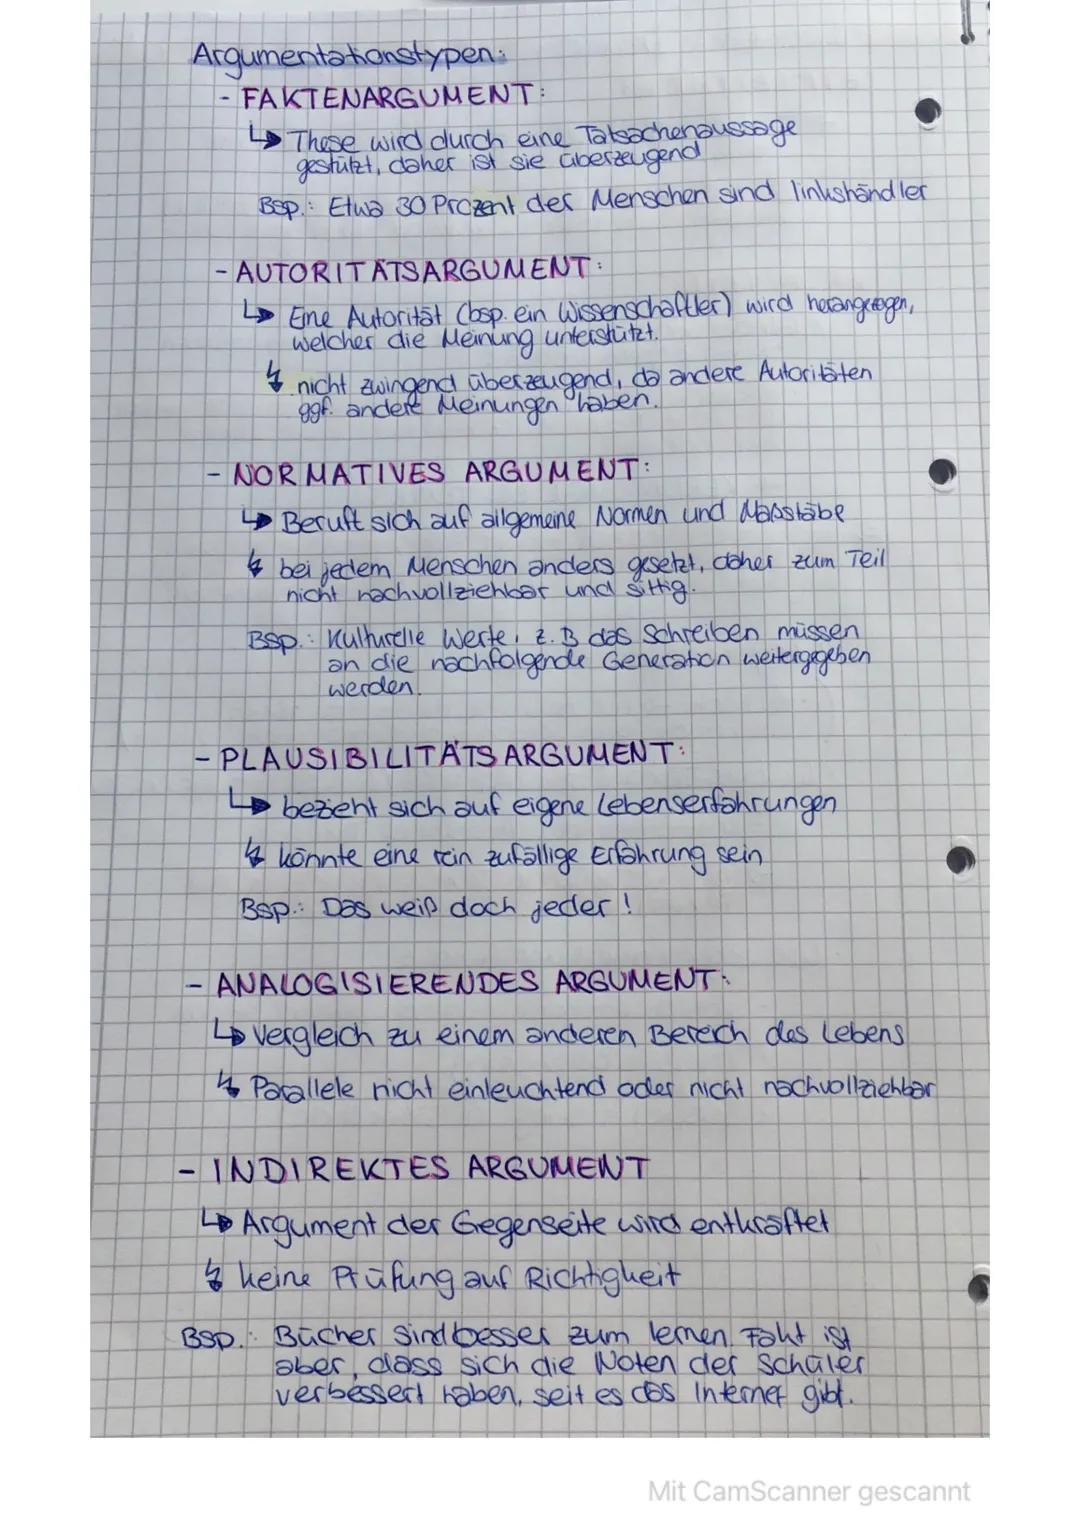 Argumentationstypen:
- FAKTENARGUMENT:
↳ These wird durch eine Tatsachenaussage
gestützt, daher ist sie überzeugend
Bsp.: Etwa 30 Prozent der Menschen sind linkshändler
- AUTORITÄTSARGUMENT:
↳ Eine Autorität (bsp. ein Wissenschaftler) wird herangezogen,
welcher die Meinung unterstützt.
↯ nicht zwingend überzeugend, da andere Autoritäten
ggf. andere Meinungen haben.
- NORMATIVES ARGUMENT:
↳ Beruft sich auf allgemeine Normen und Maßstäbe
↯ bei jedem Menschen anders gesetzt, daher zum Teil
nicht nachvollziehbar und sittig.
Bsp.: Kulturelle Werte, z.B das Schreiben müssen
an die nachfolgende Generation weitergegeben
werden.
- PLAUSIBILITÄTSARGUMENT:
↳ bezieht sich auf eigene Lebenserfahrungen
↯ könnte eine rein zufällige Erfahrung sein
Bsp.: Das weiß doch jeder!
- ANALOGISIERENDES ARGUMENT:
↳ Vergleich zu einem anderen Bereich des Lebens
↯ Parallele nicht einleuchtend oder nicht nachvollziehbar
- INDIREKTES ARGUMENT
↳ Argument der Gegenseite wird entkräftet
↯ keine Prüfung auf Richtigkeit
Bsp.: Bücher sind besser zum lernen. Fakt ist
aber, dass sich die Noten der Schüler
verbessert haben, seit es das Internet gibt.
Mit CamScanner gescannt